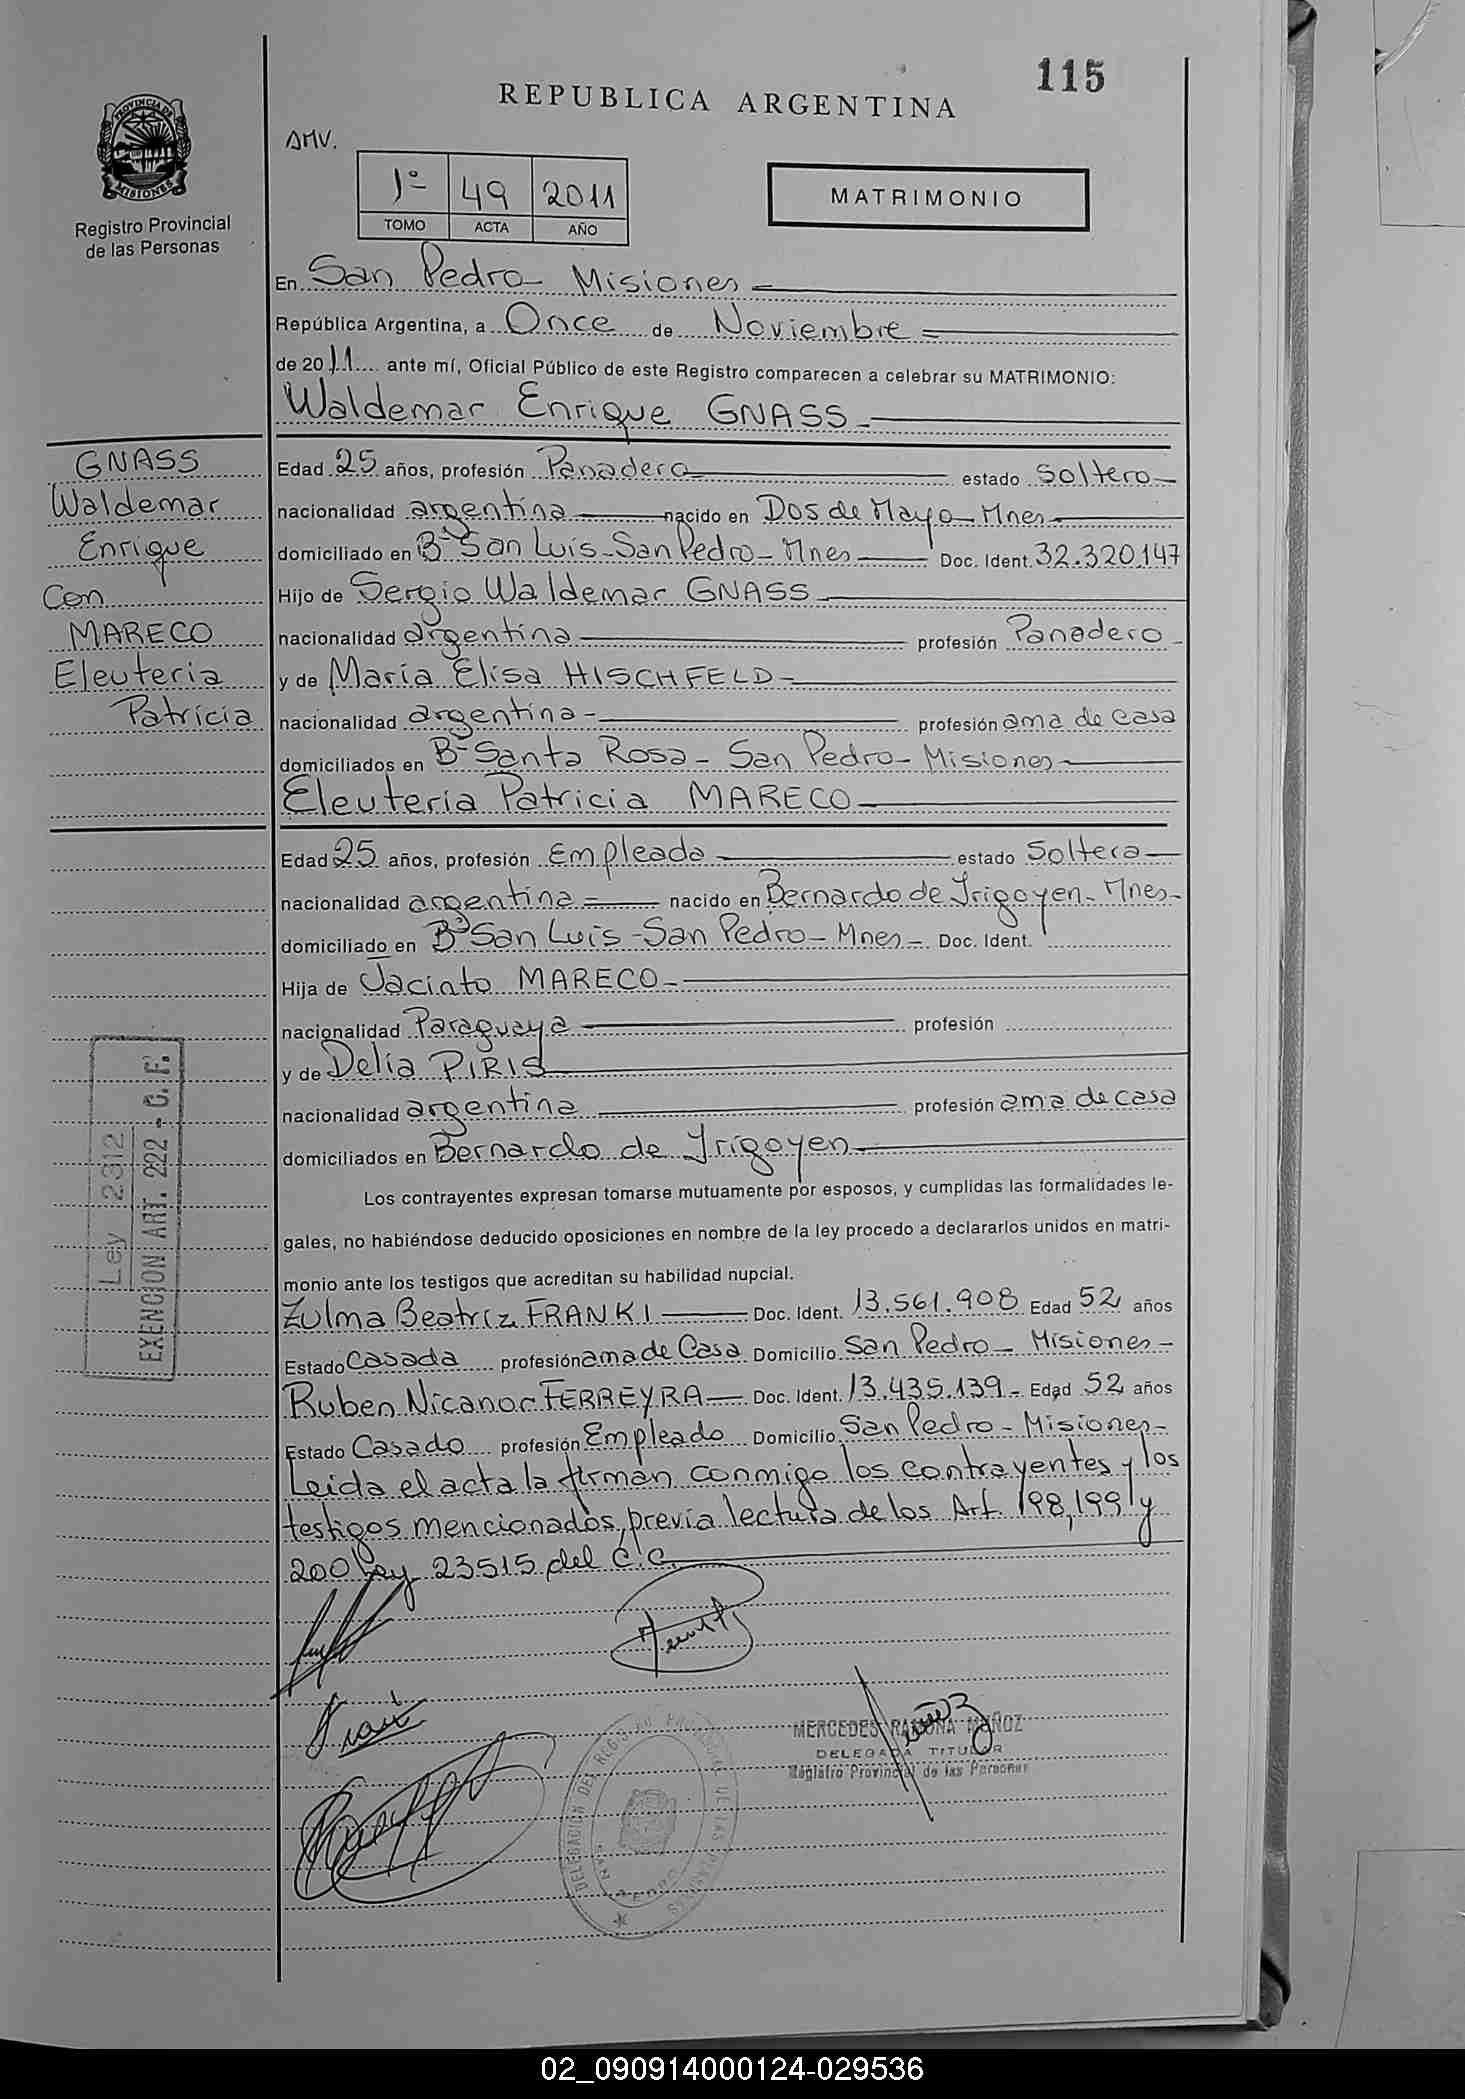 115
REPUBLICA ARGENTINA
PROVINCIA DE
MISIONES
Registro Provincial
de las Personas
AMV.
1º 49 2011
TOMO ACTA AÑO
MATRIMONIO
En San Pedro - Misiones
República Argentina, a Once de Noviembre
de 2011 ante mí, Oficial Público de este Registro comparecen a celebrar su MATRIMONIO:
Waldemar Enrique GNASS
GNASS
Waldemar
Enrique
Con
MARECO
Eleuteria
Patricia
Edad 25 años, profesión Panadero estado Soltero
nacionalidad argentina nacido en Dos de Mayo - Mnes
domiciliado en Bº San Luis - San Pedro - Mnes Doc. Ident. 32.320.147
Hijo de Sergio Waldemar GNASS
nacionalidad argentina profesión Panadero
y de María Elisa HISCHFELD
nacionalidad argentina profesión ama de casa
domiciliados en Bº Santa Rosa - San Pedro - Misiones
Eleuteria Patricia MARECO
Edad 25 años, profesión Empleada estado Soltera
nacionalidad argentina nacido en Bernardo de Irigoyen - Mnes
domiciliado en Bº San Luis - San Pedro - Mnes Doc. Ident.
Hija de Jacinto MARECO
nacionalidad Paraguaya profesión
y de Delia PIRIS
nacionalidad argentina profesión ama de casa
domiciliados en Bernardo de Irigoyen
Los contrayentes expresan tomarse mutuamente por esposos, y cumplidas las formalidades le-
gales, no habiéndose deducido oposiciones en nombre de la ley procedo a declararlos unidos en matri-
monio ante los testigos que acreditan su habilidad nupcial.
Zulma Beatriz FRANKI Doc. Ident. 13.561.908 Edad 52 años
Estado Casada profesión ama de Casa Domicilio San Pedro - Misiones
Ruben Nicanor FERREYRA Doc. Ident. 13.435.139 Edad 52 años
Estado Casado profesión Empleado Domicilio San Pedro - Misiones
Leida el acta la firman conmigo los contrayentes y los
testigos mencionados, previa lectura de los Art. 198, 199 y
200 Ley 23515 del C.C.
Ley 2312
EXENCION ART. 222 - C.F.
MERCEDES RAMONA MUÑOZ
DELEGADA TITULAR
Registro Provincial de las Personas
DELEGACIÓN DEL REGISTRO PROVINCIAL DE LAS PERSONAS
SAN PEDRO
02_090914000124-029536